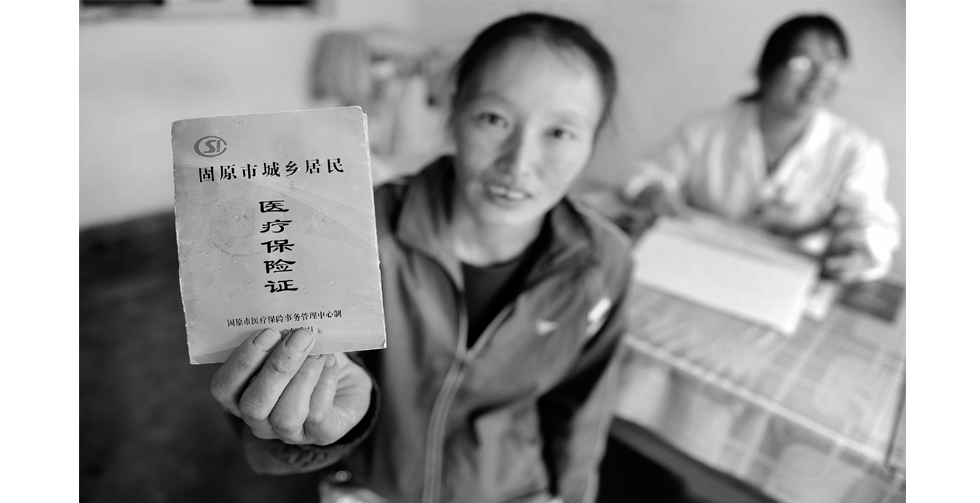 SI
固原市城乡居民
医疗保险证
固原市医疗保险事务管理中心制